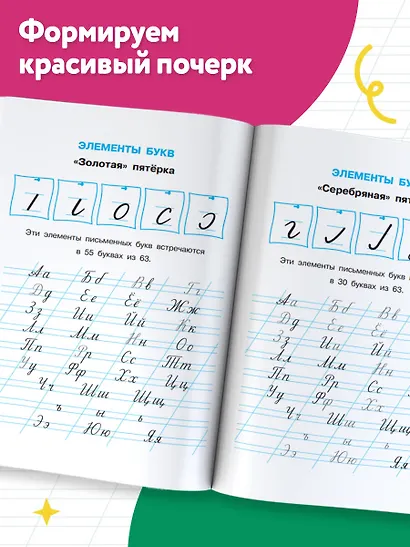 Формируем
красивый почерк
ЭЛЕМЕНТЫ БУКВ
«Золотая» пятёрка
Эти элементы письменных букв встречаются
в 55 буквах из 63.
Аа Бб Вв Гг
Дд Ее Ёё Жж
Зз Ии Йй Кк
Лл Мм Нн Оо
Пп Рр Сс Тт
Уу Фф Хх Цц
Чч Шш Щщ
ъ ы ь
Ээ Юю Яя
ЭЛЕМЕНТЫ БУ
«Серебряная» пят
Эти элементы письменных букв
в 30 буквах из 63.
Аа Бб Вв
Дд Ее Ёё
Зз Ии Йй
Лл Мм Нн
Пп Рр Сс
Уу Фф Хх
Чч Шш Щщ
ъ ы ь
Ээ Юю Яя